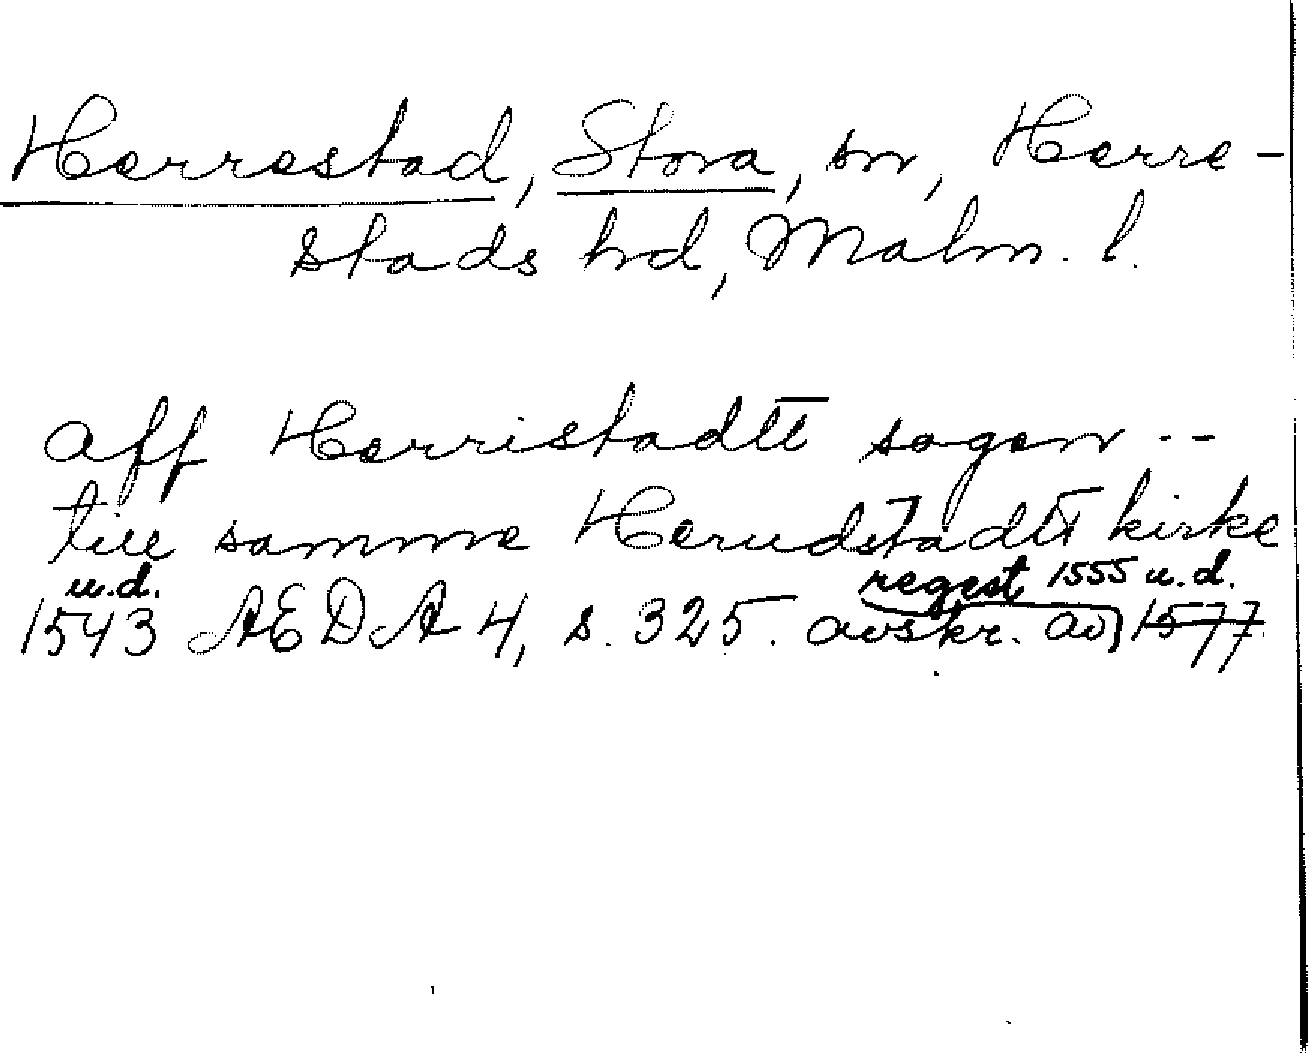 Herrestad, Stora, sn, Herre-
stads hd, Malm. l.
aff Herristadtt sogen --
till samme Herudstadtt kirke
u.d. regest 1555 u.d.
1543 AEDA 4, s. 325. avskr. av 1577